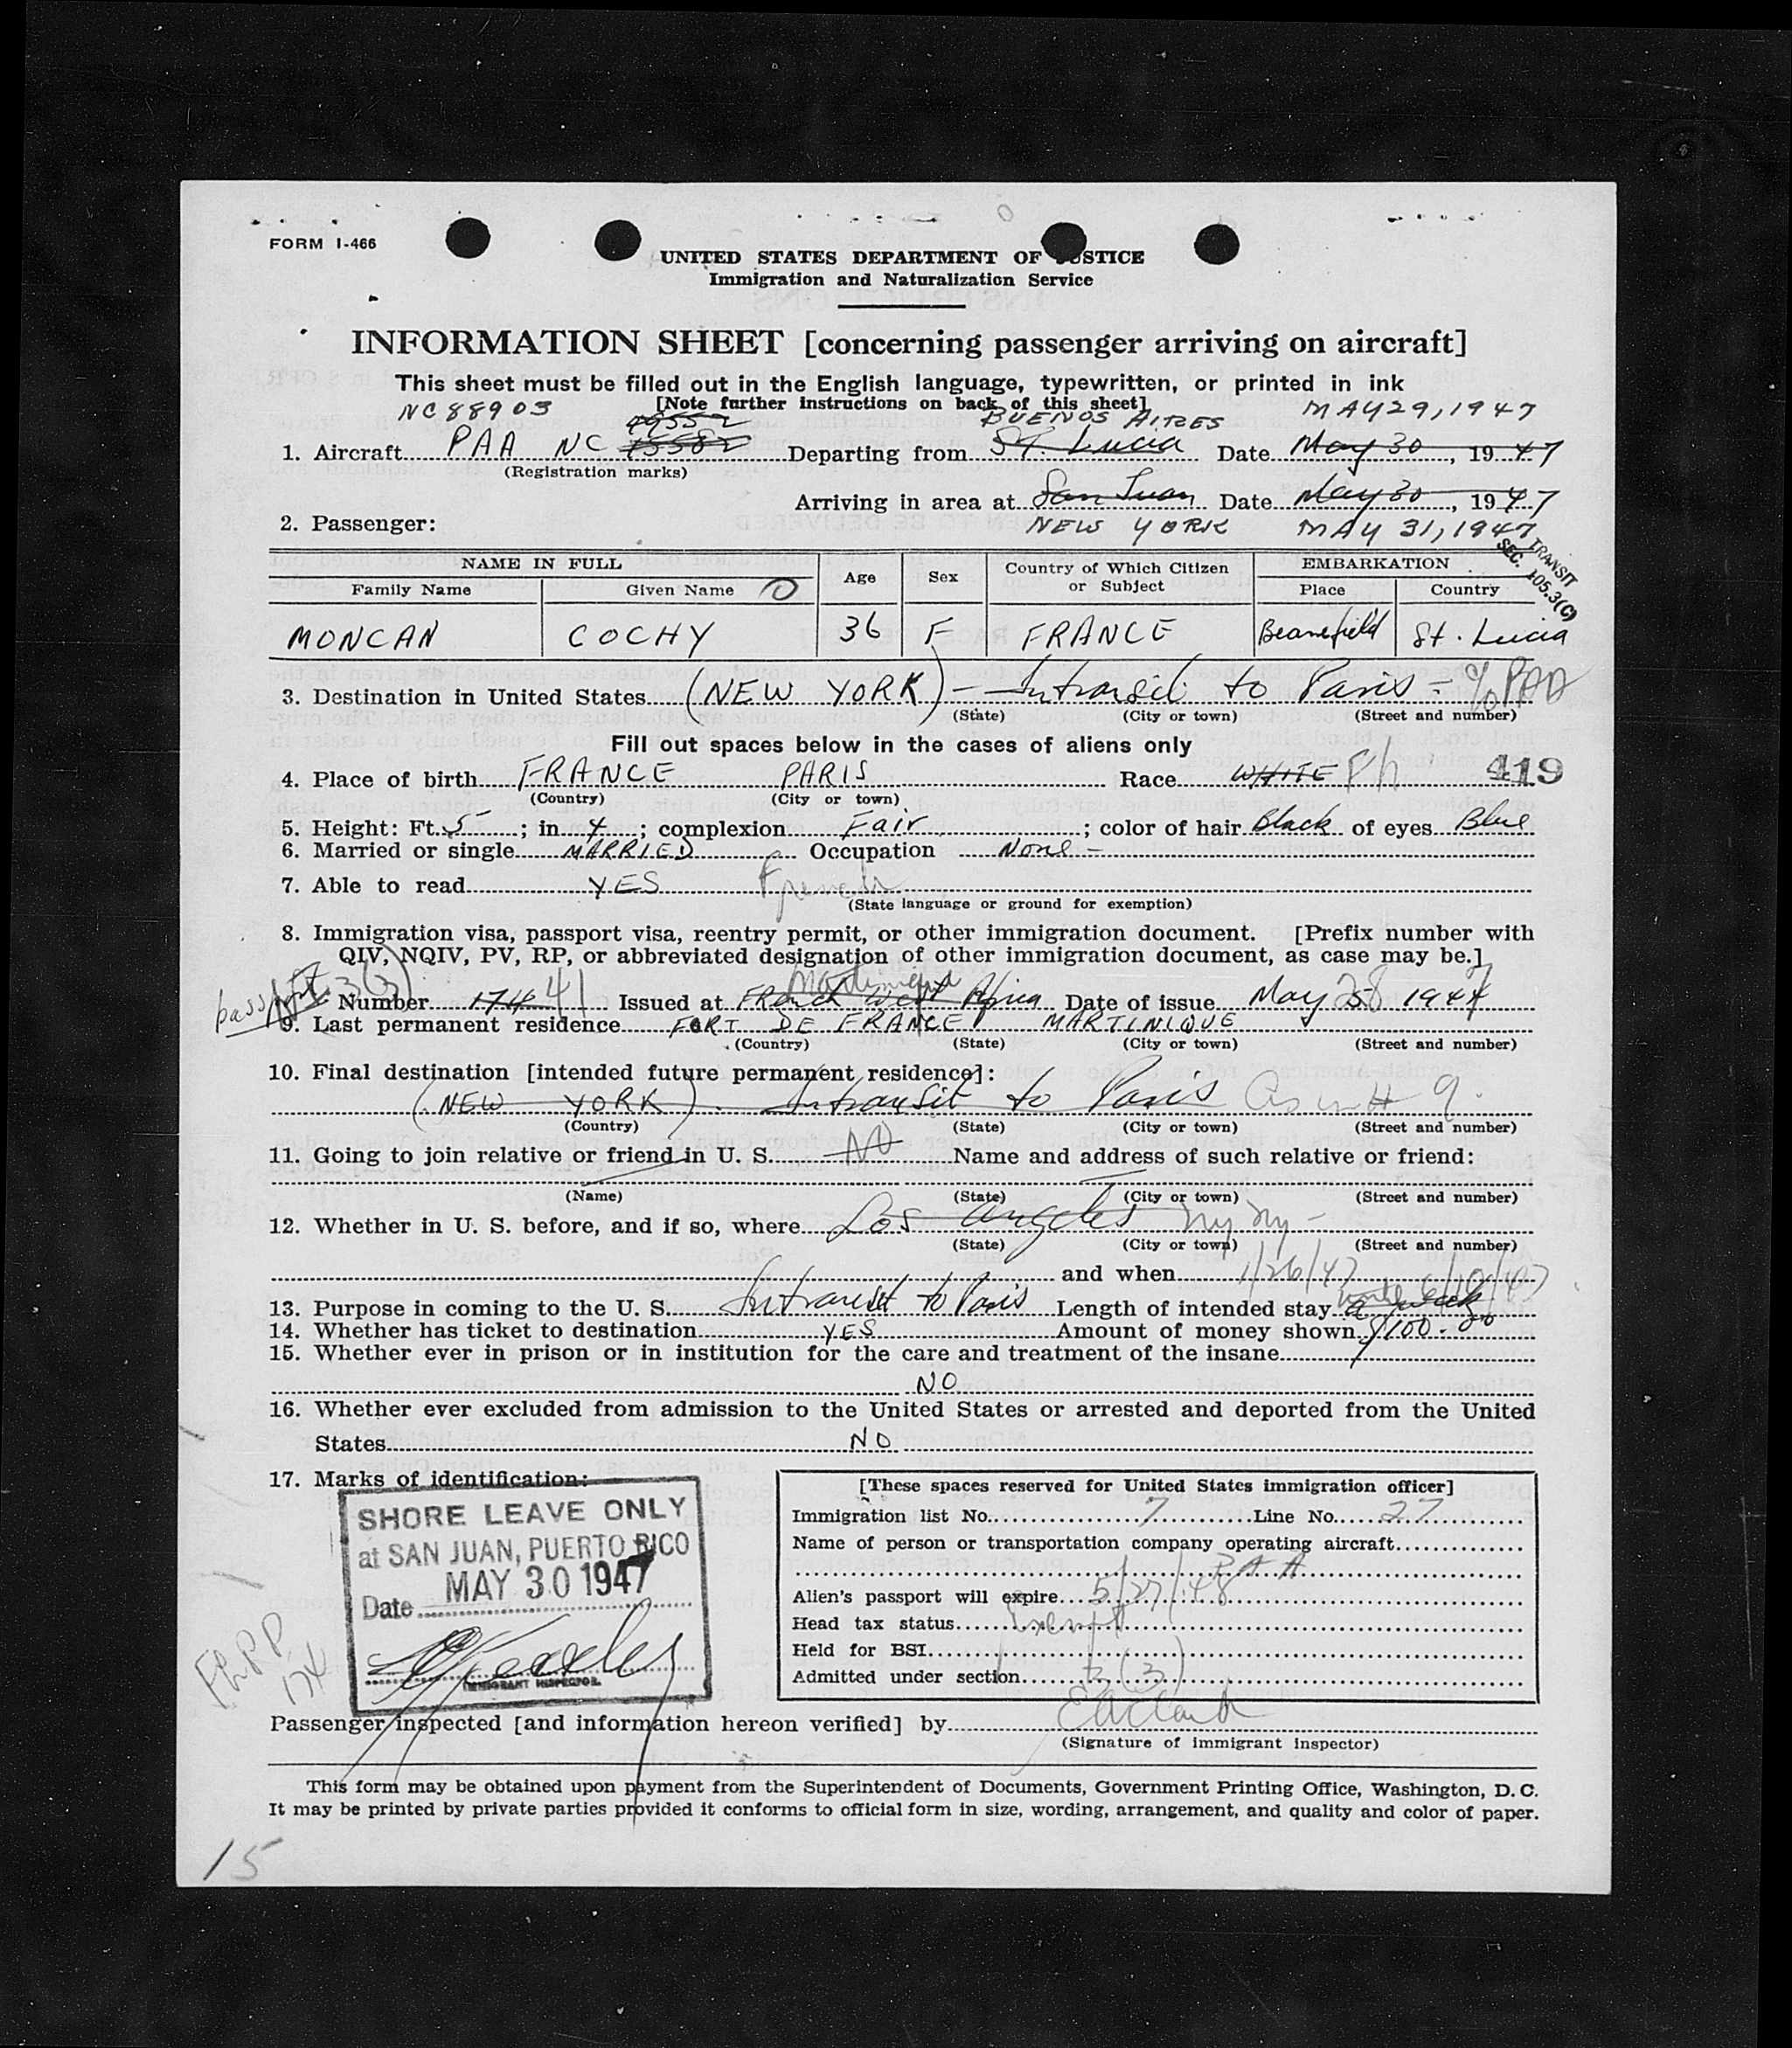 FORM I-466
UNITED STATES DEPARTMENT OF JUSTICE
Immigration and Naturalization Service
INFORMATION SHEET [concerning passenger arriving on aircraft]
This sheet must be filled out in the English language, typewritten, or printed in ink
[Note further instructions on back of this sheet]
NC88903 49552 BUENOS AIRES MAY 29, 1947
1. Aircraft PAA NC 15582 Departing from St. Lucia Date May 30, 1947
(Registration marks)
Arriving in area at San Juan Date May 30, 1947
2. Passenger: NEW YORK MAY 31, 1947
TRANSIT
SEC. 105.3(C)
NAME IN FULL Age Sex Country of Which Citizen or Subject EMBARKATION
Family Name Given Name Place Country
MONCAN COCHY 36 F FRANCE Beanefield St. Lucia
3. Destination in United States (NEW YORK) - Intransit to Paris - % PAA
(State) (City or town) (Street and number)
Fill out spaces below in the cases of aliens only
4. Place of birth FRANCE PARIS Race WHITE 419
(Country) (City or town)
5. Height: Ft. 5; in 4; complexion Fair; color of hair Black of eyes Blue
6. Married or single MARRIED Occupation None -
7. Able to read YES French
(State language or ground for exemption)
8. Immigration visa, passport visa, reentry permit, or other immigration document. [Prefix number with
QIV, NQIV, PV, RP, or abbreviated designation of other immigration document, as case may be.]
Martinique
Number 1746 41 Issued at French West Africa Date of issue May 28 194
9. Last permanent residence FORT DE FRANCE MARTINIQUE
(Country) (State) (City or town) (Street and number)
10. Final destination [intended future permanent residence]:
(NEW YORK). Intransit to Paris As in # 9.
(Country) (State) (City or town) (Street and number)
11. Going to join relative or friend in U. S. NO Name and address of such relative or friend:
(Name) (State) (City or town) (Street and number)
12. Whether in U. S. before, and if so, where Los Angeles NY NY -
(State) (City or town) (Street and number)
and when 1/26/47
13. Purpose in coming to the U. S. Intransit to Paris Length of intended stay a week until 6/10/47
14. Whether has ticket to destination YES Amount of money shown $100.00
15. Whether ever in prison or in institution for the care and treatment of the insane
NO
16. Whether ever excluded from admission to the United States or arrested and deported from the United
States NO
17. Marks of identification:
SHORE LEAVE ONLY
at SAN JUAN, PUERTO RICO
MAY 30 1947
Date
IMMIGRANT INSPECTOR
[These spaces reserved for United States immigration officer]
Immigration list No. 7 Line No. 27
Name of person or transportation company operating aircraft
PAA
Alien's passport will expire 5/27/48
Head tax status Exempt
Held for BSI
Admitted under section 3(3)
174
Passenger inspected [and information hereon verified] by
(Signature of immigrant inspector)
This form may be obtained upon payment from the Superintendent of Documents, Government Printing Office, Washington, D. C.
It may be printed by private parties provided it conforms to official form in size, wording, arrangement, and quality and color of paper.
15